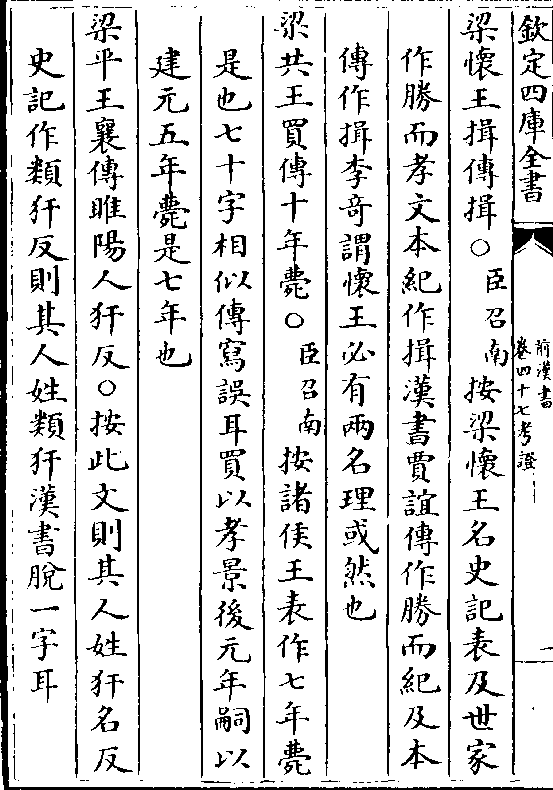 欽定四庫全書
前漢書
卷四十七考證
一
梁懷王揖傳揖○臣召南按梁懷王名史記表及世家
作勝而孝文本紀作揖漢書賈誼傳作勝而紀及本
傳作揖李奇謂懷王必有兩名理或然也
梁共王買傳十年薨○臣召南按諸侯王表作七年薨
是也七十字相似傳寫誤耳買以孝景後元年嗣以
建元五年薨是七年也
梁平王襄傳睢陽人犴反○按此文則其人姓犴名反
史記作類犴反則其人姓類犴漢書脫一字耳